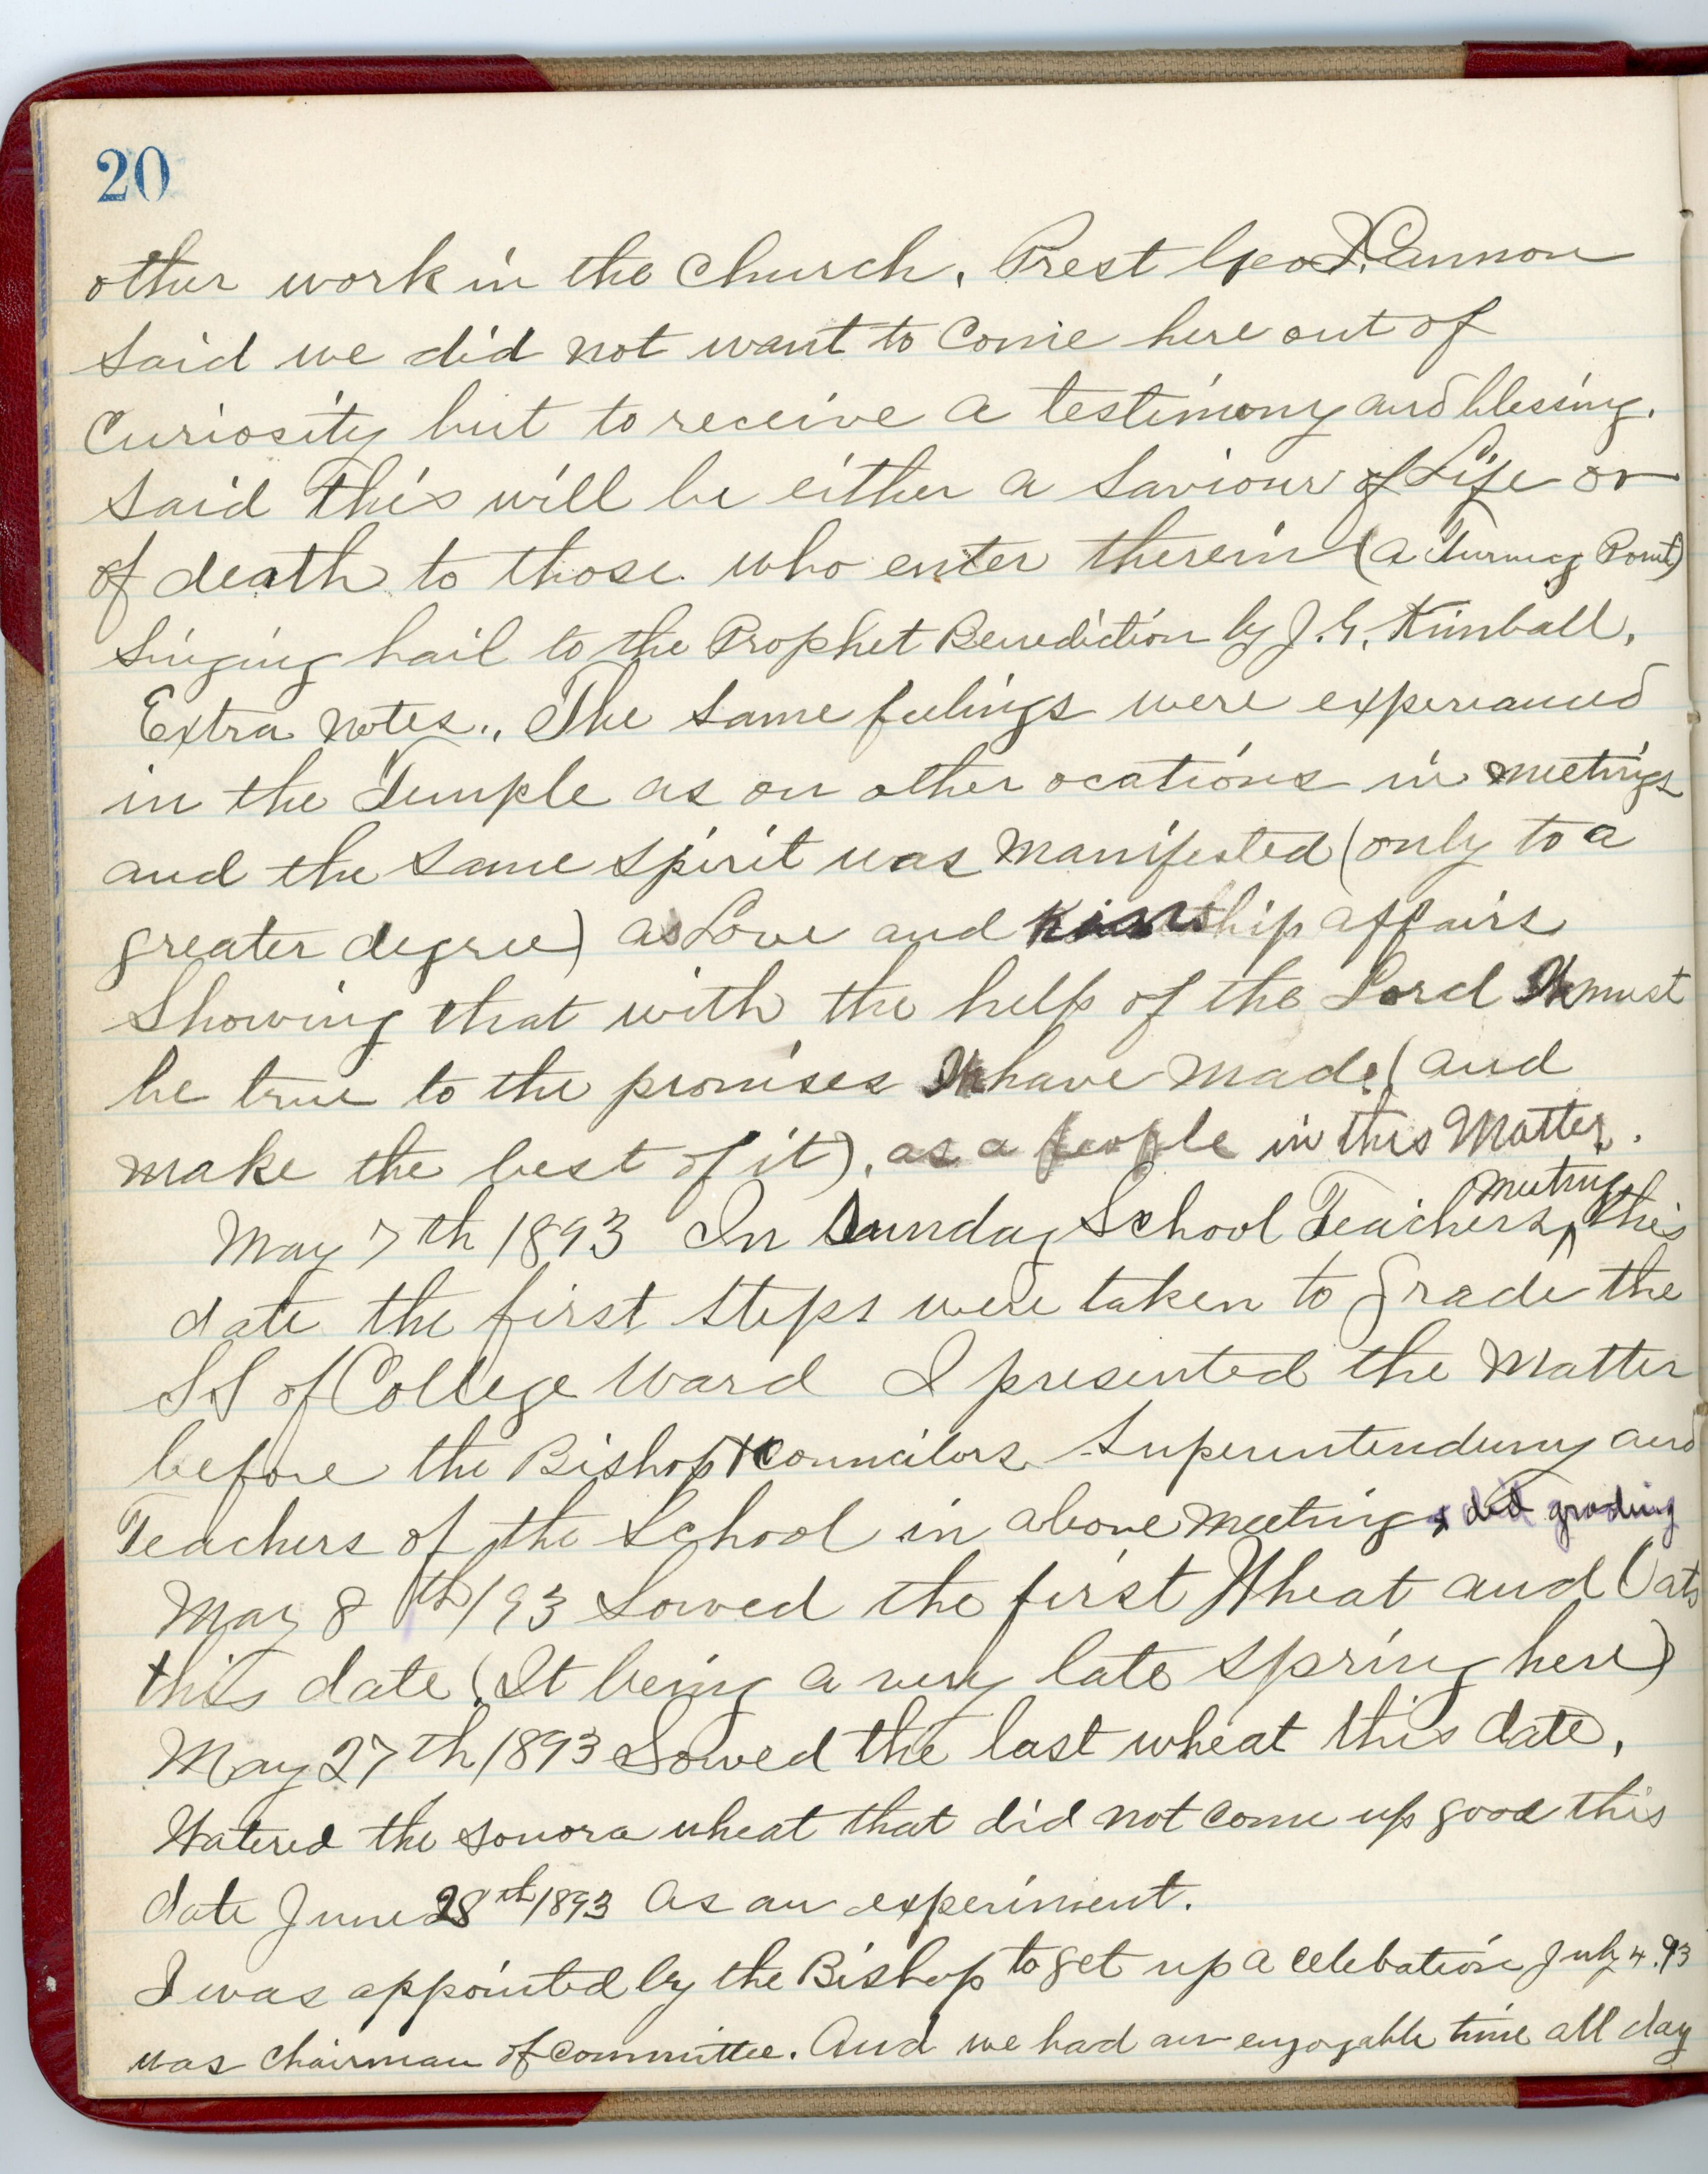 20
other work in the Church. Prest Geo Q. Cannon
said we did not want to Come here out of
Curiosity but to receive a testimony and blessing.
said this will be either a Saviour of Life or
of death to those who enter therein (a Turning Point)
Singing hail to the Prophet Benediction by J. G. Kimball,
Extra notes., The same feelings were experianced
in the Temple as on other ocations in meetings
and the same spirit was Manifested (only to a
greater degree) as Love and ship affairs
Showing that with the help of the Lord must
be true to the promises have Made (and
make the best of it), as a people in this Matter.
meeting
May 7th 1893 In Sunday School Teachers ^ this
date the first steps were taken to Grade the
S S of College Ward I presented the Matter
before the Bishop & Councilors Superintendency and
Teachers of the School in above Meeting & did grading
May 8th/93 Sowed the first Wheat and Oats
this date (It being a very late spring here)
May 27th/1893 Sowed the last wheat this date,
Watered the sonora wheat that did not come up good this
date June 28th/1893 as an experiment.
I was appointed by the Bishop to get up a celebation July 4.93
was Chairman of Committee. And we had an enjoyable time all day